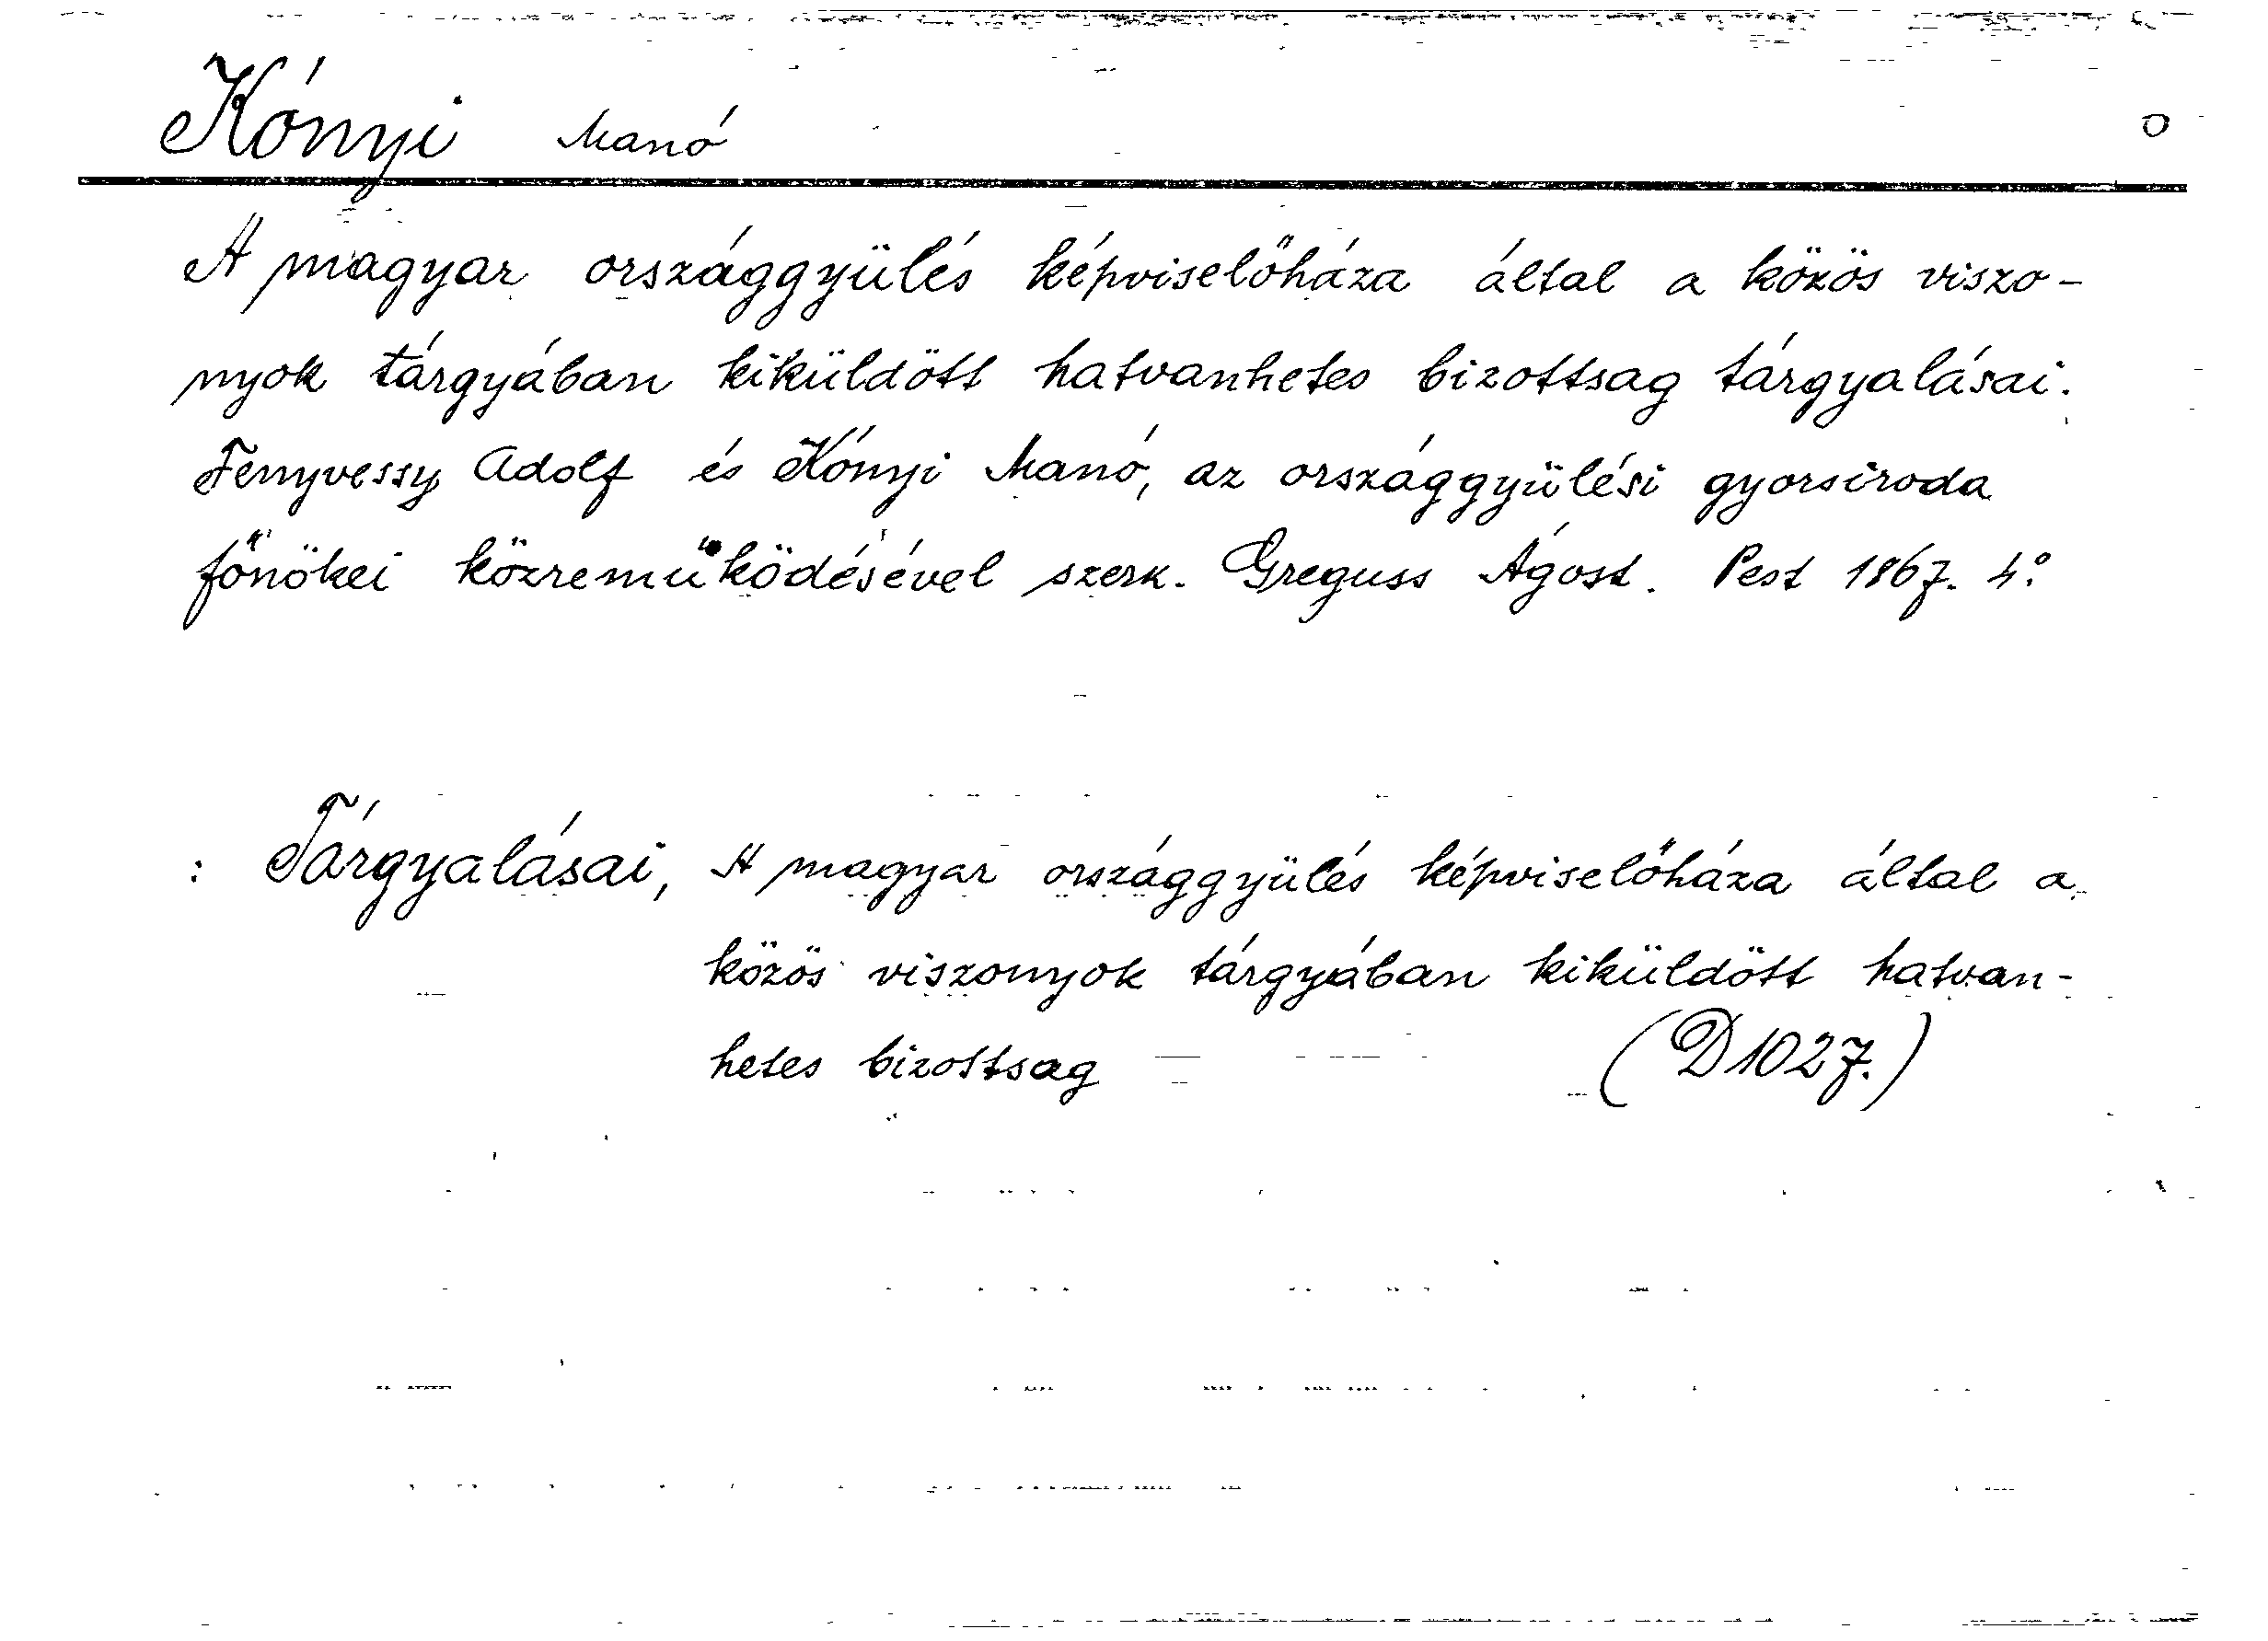 Kónyi Manó O
A magyar országgyülés képviselőháza által a közös viszo-
nyok tárgyában kiküldött hatvanhetes bizottsag tárgyalásai.
Fenyvessy Adolf és Kónyi Manó, az országgyülési gyorsiroda
főnökei közreműködésével szerk. Greguss Ágost. Pest 1867. 4°
: Tárgyalásai, A magyar országgyülés képviselőháza által a
közös viszonyok tárgyában kiküldött hatvan-
hetes bizottsag (D1027.)